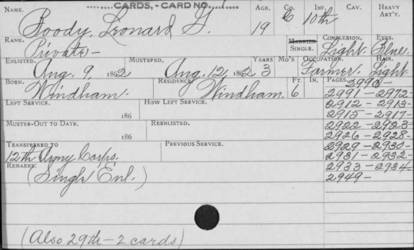 CARDS, - CARD NO. 1
NAME. AGE. CO. INF. CAV. HEAVY ART'Y.
Boody, Leonard G. 19 C 10th
RANK. MARRIED. SINGLE. COMPLEXION. EYES.
Private- Light Blue
ENLISTED. MUSTERED. YEARS MO'S OCCUPATION. HAIR.
Aug. 9 1862 Aug. 12 1862 3 Farmer. Light
BORN. RESIDENCE. FT. IN.
Windham. Windham. 6
2971-2972
LEFT SERVICE. HOW LEFT SERVICE.
2912-2913
186
2915-2917
MUSTER-OUT TO DATE. REENLISTED.
2922-2923
186
2926-2928
TRANSFERRED TO PREVIOUS SERVICE.
2929-2930-
12th Army Corps.
2931-2932-
REMARKS:
2933-2934-
(Single Enl.)
2949-
(Also 29th-2 cards)